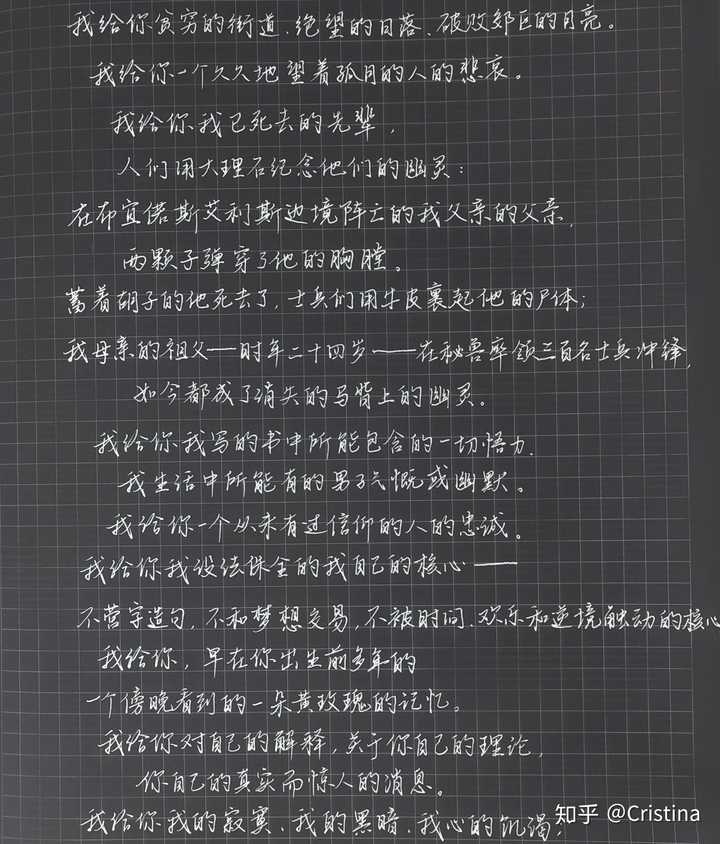 我给你贫穷的街道、绝望的日落、破败郊区的月亮。
我给你一个久久地望着孤月的人的悲哀。
我给你我已死去的先辈，
人们用大理石纪念他们的幽灵：
在布宜偌斯艾利斯边境阵亡的我父亲的父亲，
两颗子弹穿了他的胸膛。
蓄着胡子的他死去了，士兵们用牛皮裹起他的尸体；
我母亲的祖父——时年二十四岁——在秘鲁率领三百名士兵冲锋，
如今都成了消失的马背上的幽灵。
我给你我写的书中所能包含的一切悟力、
我生活中所能有的男子气慨或幽默。
我给你一个从未有过信仰的人的忠诚。
我给你我设法保全的我自己的核心——
不营字造句，不和梦想交易，不被时间、欢乐和逆境触动的核心
我给你，早在你出生前多年的
一个傍晚看到的一朵黄玫瑰的记忆。
我给你对自己的解释，关于你自己的理论，
你自己的真实而惊人的消息。
我给你我的寂寞、我的黑暗、我心的饥渴；
知乎 @Cristina